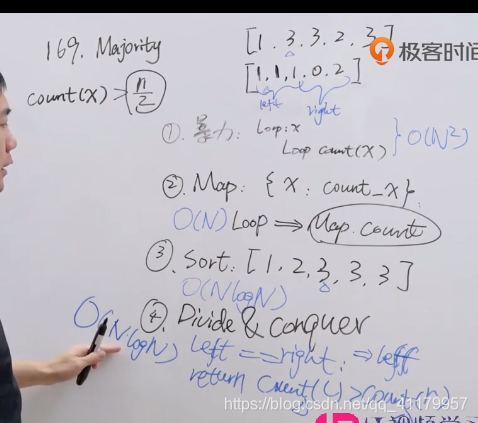 169. Majority
[1. 3. 3. 2. 3]
极客时间
count(x) > n/2
[1, 1, 1, 0, 2]
left right
①. 暴力: Loop: x
Loop count(x) } O(N²)
②. Map: {x: count_x}.
O(N) Loop ⇒ Map.count
③. Sort: [1, 2, 3, 3, 3]
O(NlogN)
④. Divide & conquer
O(N·logN) left == right: ⇒ left
return count(L) > count(r)
https://blog.csdn.net/qq_41179957